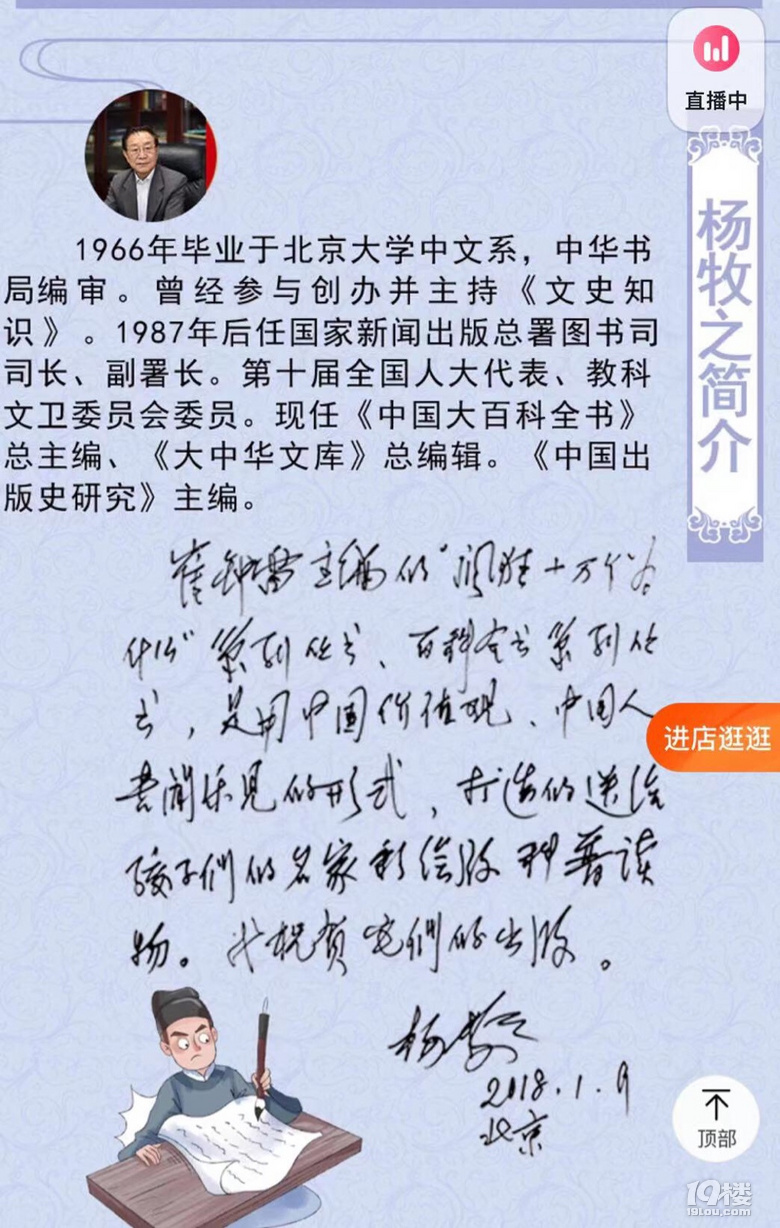 直播中
杨牧之简介
1966年毕业于北京大学中文系，中华书
局编审。曾经参与创办并主持《文史知
识》。1987年后任国家新闻出版总署图书司
司长、副署长。第十届全国人大代表、教科
文卫委员会委员。现任《中国大百科全书》
总主编、《大中华文库》总编辑。《中国出
版史研究》主编。
崔钟雷主编的“问鼎十万个为
什么”系列丛书、百科全书系列丛
书，是用中国价值观、中国人
喜闻乐见的形式，打造的送给
孩子们的名家彩绘版科普读
物。我祝贺它們的出版。
杨牧之
2018.1.9
北京
进店逛逛
顶部
19楼
19lou.com